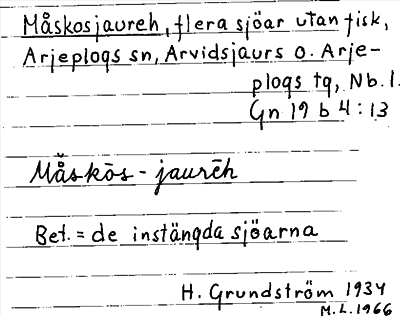 Måskosjaureh, flera sjöar utan fisk,
Arjeplogs sn, Arvidsjaurs o. Arje-
plogs tg, Nb. l.
Gn 19 b 4:13
Må̌skōs - jaurēh
Bet. = de instängda sjöarna
H. Grundström 1934
M.L. 1966